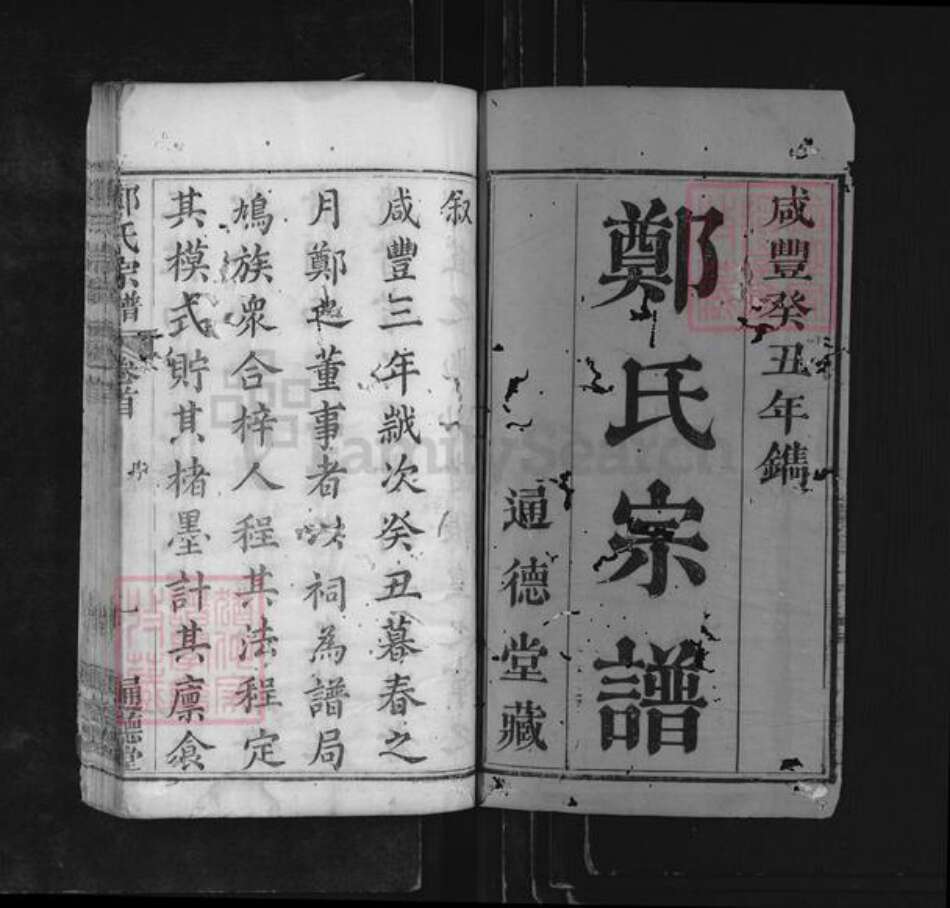 咸豐癸丑年鐫
鄭氏宗譜
通德堂藏
叙
咸豐三年歲次癸丑暮春之
月鄭邑董事者以祠為譜局
鳩族眾合梓人程其法程定
其模式貯其楮墨計其廩食
鄭氏宗譜 卷首 序 一 通德堂
FamilySearch